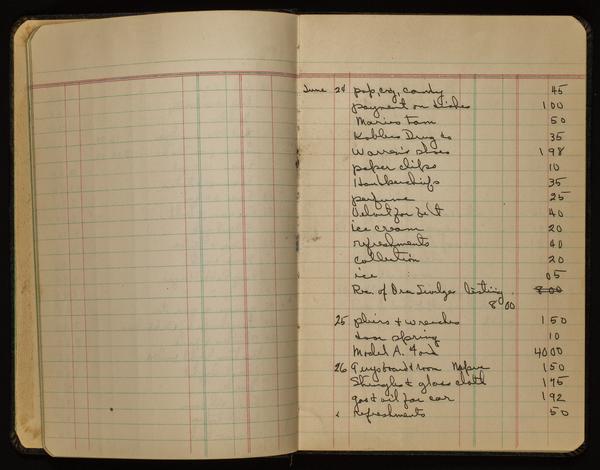 June 24 pop, cig, candy 45
payment on dishes 1 00
Maries tam 50
Koblers Drug Co 35
Warren's shoes 1 98
paper clips 10
Handkerchiefs 35
perfume 25
for belt 40
ice cream 20
refreshments 40
collection 20
ice 05
Rec. of Ora listing 8 00
8 00
25 pliers & wrenches 1 50
door spring 10
Model A. Ford 40 00
26 board & room 1 50
Shingles & glass cloth 1 75
gas & oil for car 1 92
" Refreshments 50